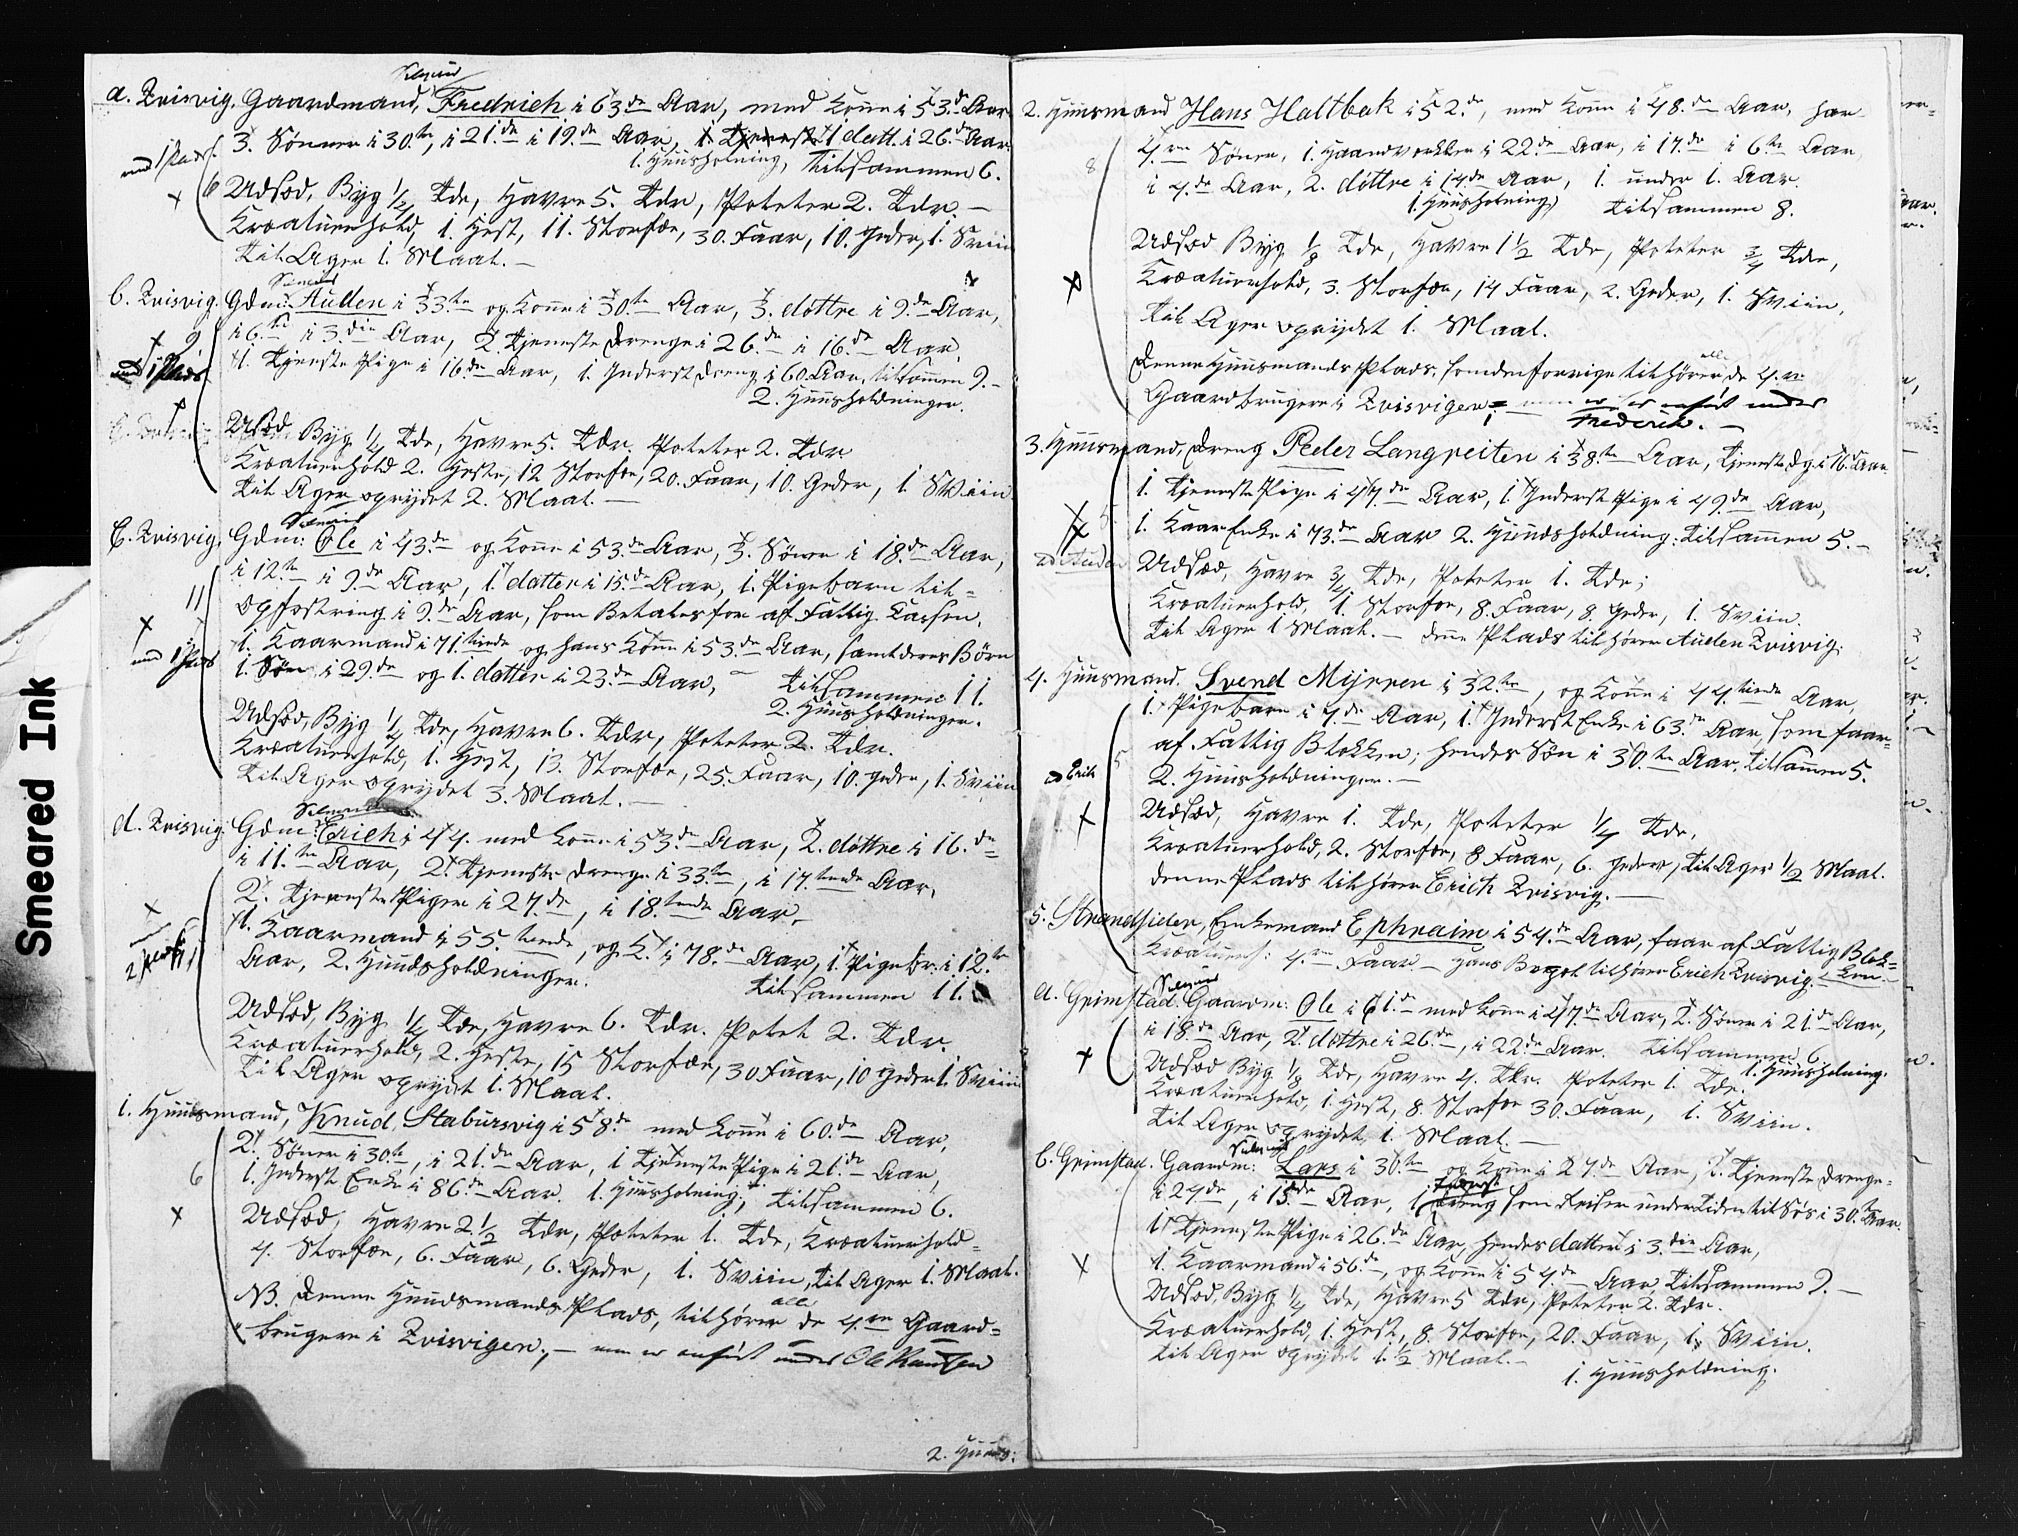 Smeared Ink
a. Qvisvig. Gaardmand, Fredrich i 63de Aar, med Kone i 53de Aar
3. Sønner i 30te, i 21de i 19de Aar, 1 datt. i 26de Aar.
1. Huusholning, tilsammen 6.
6 Udsæd, Byg 1/2 Tde, Havre 5. Tdr, Poteter 2. Tdr. —
Kreaturhold, 1. Hest, 11. Storfæ, 30. Faar, 10. Geder, 1. Sviin
til Ager 1. Maal. —
b. Qvisvig. Gdm: Auden i 33te og Kone i 30te Aar, 3. døttre i 9de Aar,
i 6te i 3die Aar, 2. Tjeneste Drenge i 26de i 16de Aar,
1. Tjeneste Pige i 16de Aar, 1. Inderst Dreng i 60 Aar, tilsammen 9. —
2. Huusholdninger.
Udsæd Byg 1/4 Tde, Havre 5. Tdr. Poteter 2. Tdr
Kreaturhold 2. Heste, 12 Storfæ, 20. Faar, 10. Geder, 1. Sviin
til Ager oprydet 2. Maal. —
C. Qvisvig. Gdm: Ole i 43de og Kone i 53de Aar, 3. Sønner i 18de Aar,
i 12te i 9de Aar, 1. datter i 15de Aar, 1. Pigebarn til-
11 opfostring i 9de Aar, som Betales for af Fattig Cassen,
1. Kaarmand i 71. tinde og hans Kone i 53de Aar, samt deres Børn
1. Søn i 29de og 1. datter i 23de Aar, — tilsammen 11.
2. Huusholdninger.
Udsæd, Byg 1/4 Tde, Havre 6. Tdr, Poteter 2. Tdr.
Kreaturhold, 1. Hest, 13. Storfæ, 25. Faar, 10. Geder, 1. Sviin
til Ager oprydet 3. Maal. —
d. Qvisvig. Gdm: Erich i 44. med Kone i 53de Aar, 2. døttre i 16. de
i 11te Aar, 2. Tjeneste Drenge i 33te, i 17. tende Aar,
2. Tjeneste Piger i 27de, i 18. tende Aar,
1. Kaarmand i 55. tende, og K. i 78de Aar, 1. Pigebr. i 12te
11 Aar, 2. Huudsholdninger. tilsammen 11.
Udsæd, Byg 1/4 Tde, Havre 6. Tdr. Potet 2. Tdr.
Kreaturhold, 2. Heste, 15 Storfæ, 30 Faar, 10 Geder 1. Sviin
til Ager oprydet 1. Maal.
1. Huudsmand, Knud Stabursvig i 58de med Kone i 60de Aar,
2. Sønner i 30te, i 21de Aar, 1 Tjeneste Pige i 21de Aar,
6 1. Inderst Enke i 86de Aar. 1. Huusholning, tilsammen 6.
Udsæd, Havre 2 1/2 Tdr, Poteter 1. Tde, Kreaturhold-
4. Storfæ, 6. Faar, 6. Geder, 1. Sviin, til Ager 1. Maal.
NB. Denne Huudsmands Plads, tilhører alle de 4re Gaard-
brugere i Qvisvigen, — men er anført under Ole
2. Huuds:
2. Huusmand Hans Haltbak i 52de, med Kone i 48de Aar, har
8 4re Sønner, 1. Haandverkker i 22de Aar, i 17de i 6te Aar
i 4de Aar, 2. døttre i 14de Aar, 1. under 1. Aar.
1. Huusholning tilsammen 8.
Udsæd Byg 1/8 Tde, Havre 1 1/2 Tde, Poteter 3/4 Tde,
Kreaturhold, 3. Storfæ, 14 Faar, 2. Geder, 1. Sviin,
til Ager oprydet 1. Maal.
Denne Huusmands Plads, som den forrige tilhører alle de 4re
Gaardbrugere i Qvisvigen; men er anført under
Frederik. —
3. Huusmand, Dreng Peder Langreiten i 38te Aar, Tjeneste Dg. i 16. Aar
1. Tjeneste Pige i 47de Aar, 1. Inderst Pige i 49de Aar,
5. 1. Kaar Enke i 73de Aar 2. Huudsholdning: tilsammen 5. —
Udsæd, Havre 3/4 Tde, Poteter 1. Tde;
Kreaturhold, 1. Storfæ, 8. Faar, 8. Geder, 1. Sviin.
til Ager 1 Maal. — denne Plads tilhører Auden Qvisvig.
4. Huusmand. Svend Mijrren i 32te, og Kone i 44. tinde Aar,
1. Pigebarn i 4de Aar, 1. Inderst Enke i 63de Aar, som faar
5 af Fattig Blokken; hendes Søn i 30te Aar, tilsammen 5.
2. Huusholdninger. —
Udsæd, Havre 1. Tde, Poteter 1/4 Tde,
Kreaturhold, 2. Storfæ, 8 Faar, 6. Geder, til Ager 1/2 Maal.
denne Plads tilhører Erich Qvisvig. —
5. Strandsidder, Enkemand Ephraim i 54de Aar, faar af Fattig Blok-
ken. —
Kreaturh: 4re Faar — hans Bopel tilhører Erich Qvisvig.
a. Grimstad. Gaardm: Ole i 61de med Kone i 47de Aar, 2. Sønner i 21de Aar,
i 18de Aar, 2. døttre i 26de, i 22de Aar. tilsammen 6
1. Huusholning.
Udsæd Byg 1/8 Tde, Havre 4. Tdr. Poteter 1. Tde.
Kreaturhold, 1. Hest, 8. Storfæ 30. Faar, 1. Sviin.
til Ager oprydet 1. Maal. —
b. Grimstad. Gaardm: Lars i 30te og Kone i 24de Aar, 2. Tjeneste Drenge-
i 24de, i 15de Aar, 1. Inderst Dreng som Reiser undertiden til Søs i 30te Aar.
1. Tjeneste Pige i 26de Aar, hendes datter i 3die Aar,
1. Kaarmand i 56de, og Kone i 54de Aar, tilsammen 9. —
Udsæd, Byg 1/4 Tde, Havre 5 Tdr, Poteter 2. Tdr.
Kreaturhold, 1. Hest, 8. Storfæ, 20. Faar, 1. Sviin.
til Ager oprydet 1. 1/2 Maal. —
1. Huusholdning.